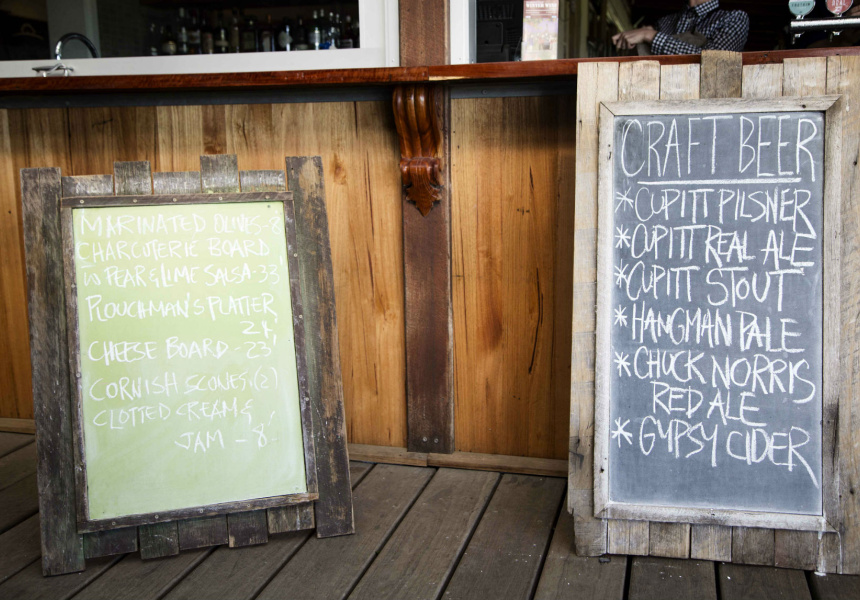 MARINATED OLIVES-8
CHARCUTERIE BOARD
W PEAR & LIME SALSA-33
PLOUCHMAN'S PLATTER
CHEESE BOARD - 23
CORNISH SCONES (2)
CLOTTED CREAM &
JAM - 8
CRAFT BEER
* CUPITT PILSNER
* CUPITT REAL ALE
* CUPITT STOUT
* HANGMAN PALE
* CHUCK NORRIS
RED ALE
* GYPSY CIDER